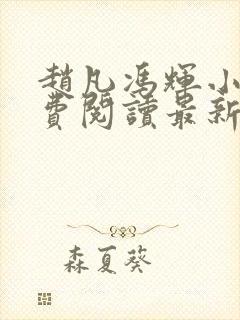 趙凡馮輝小
費閱讀最新
森夏葵